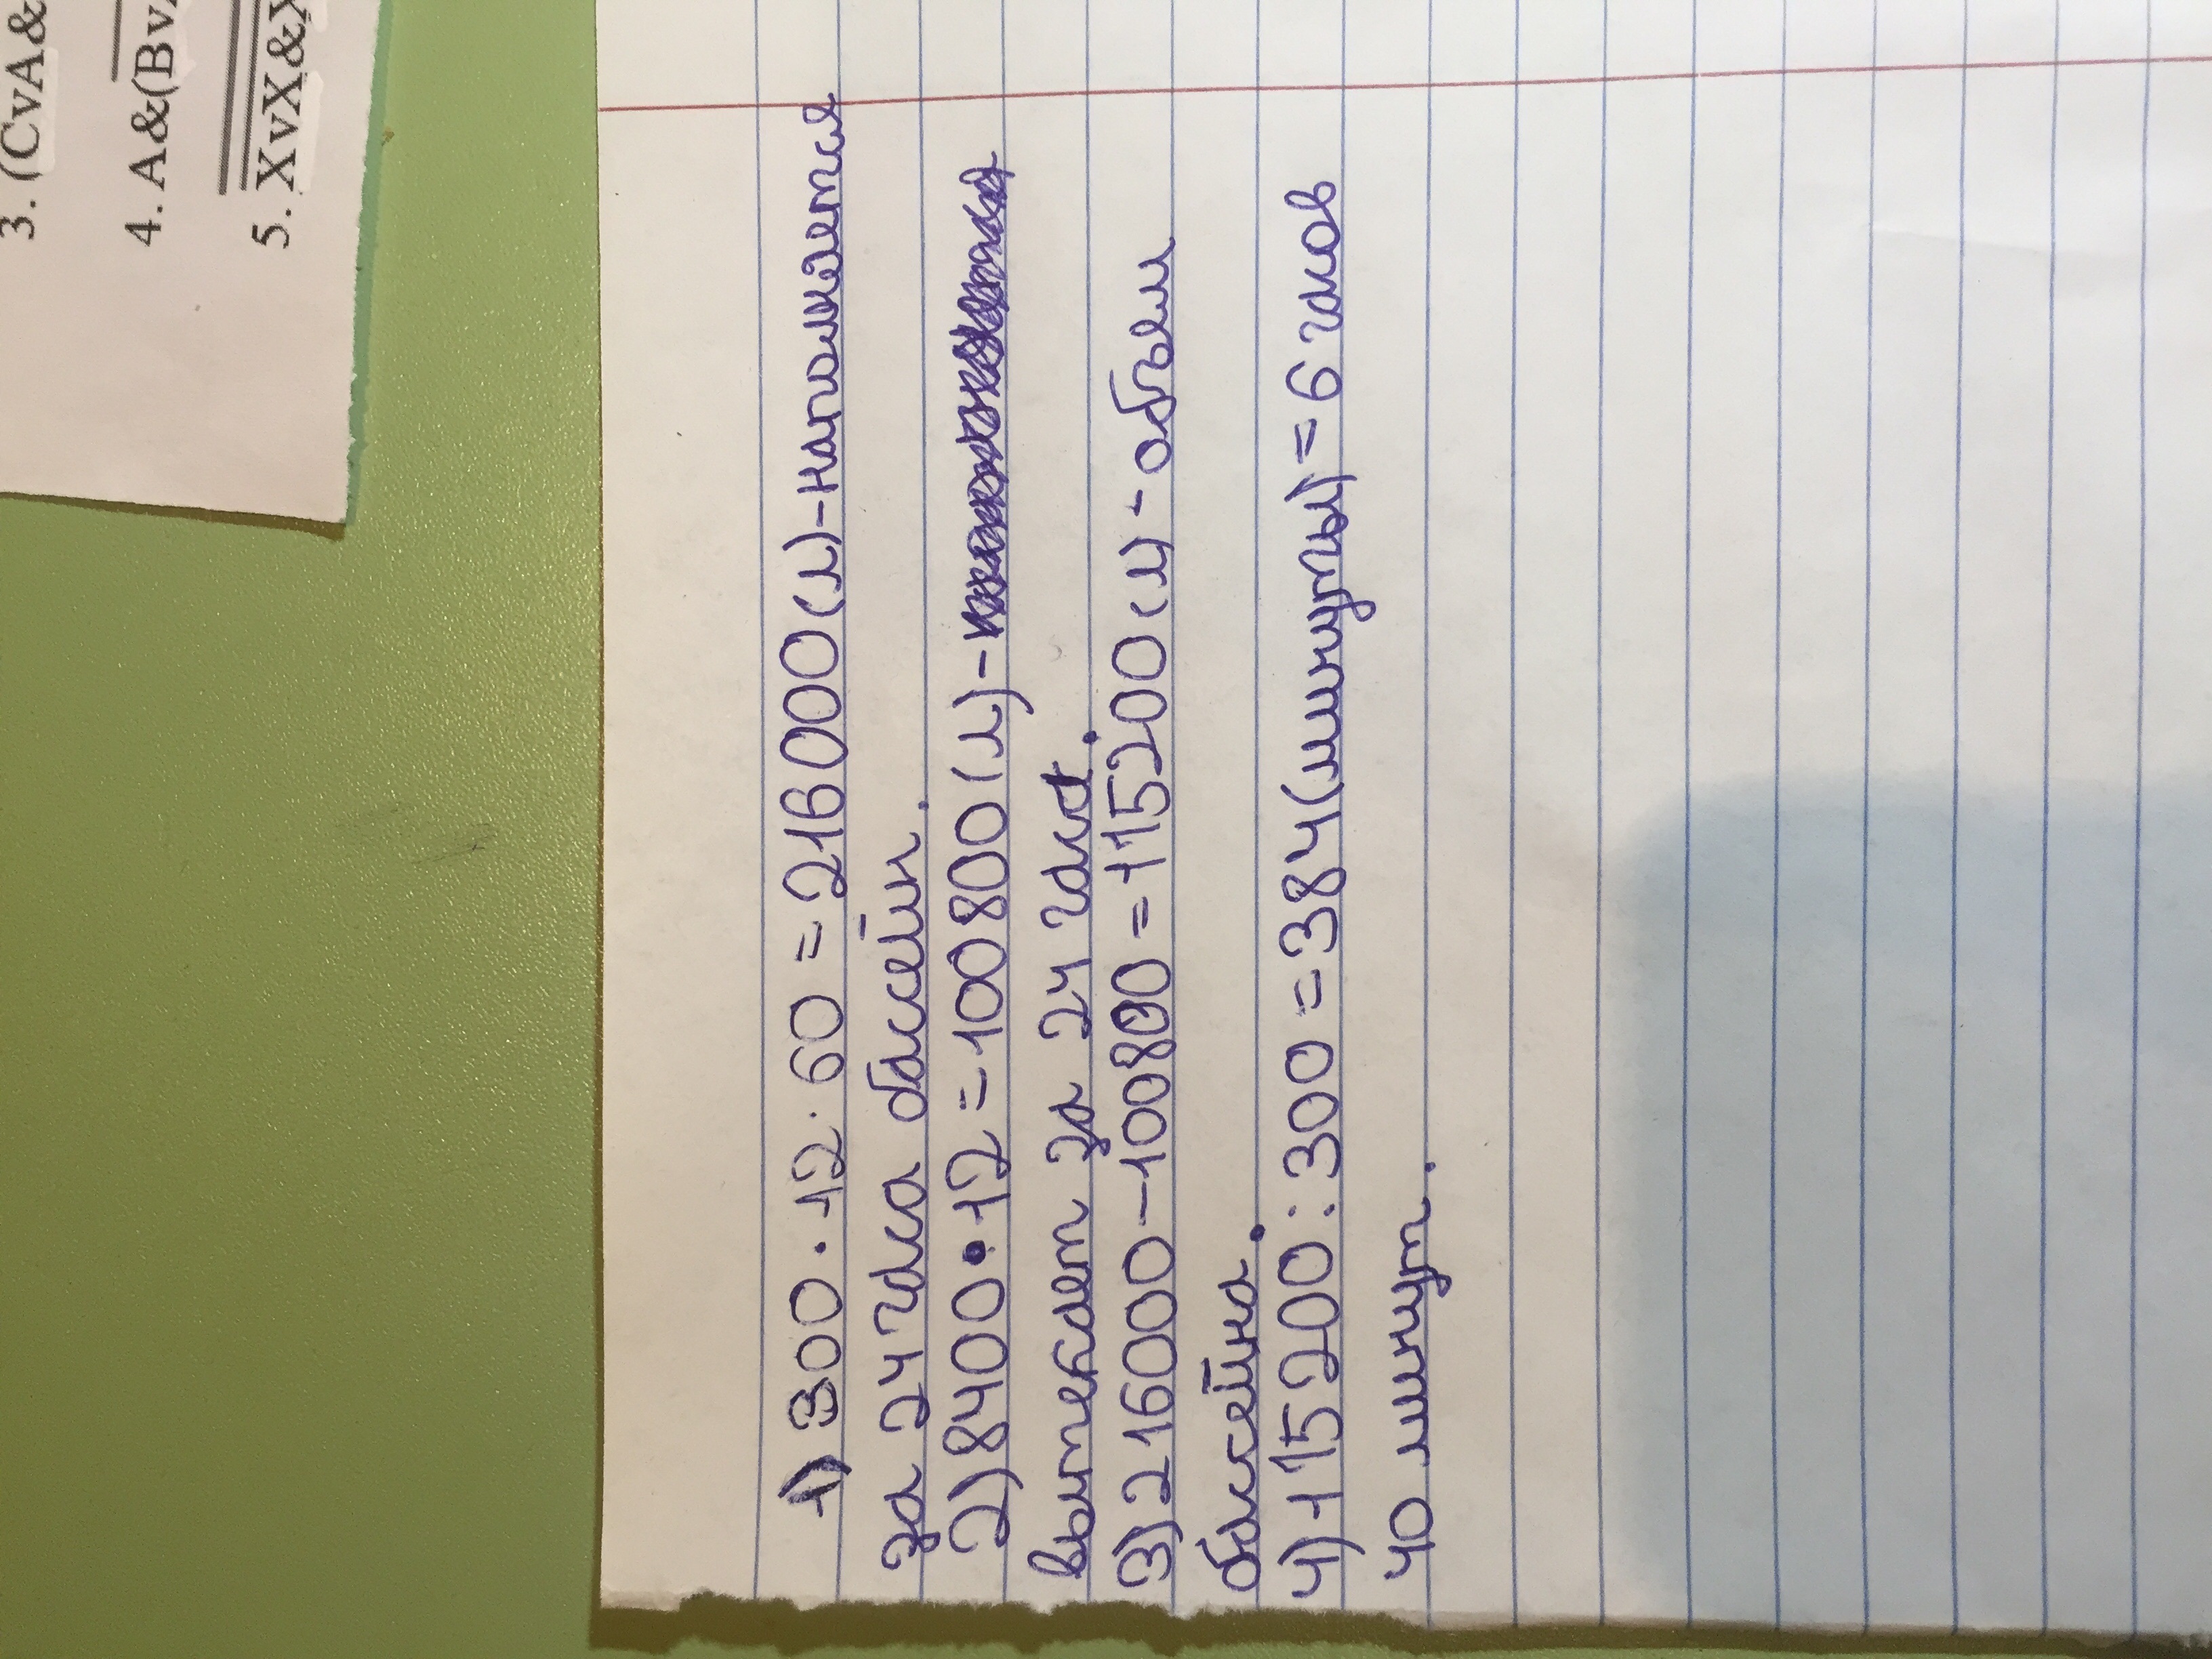 3. (CvA&
4. A&(Bv
5. XvX&X
1) 300 · 12 · 60 = 216000(л)-наполняется
за 24 часа бассейн.
2) 8400 · 12 = 100800(л)-
вытекает за 24 часа.
3) 216000-100800=115200(л) - объем
бассейна.
4) 115200:300=384(минуты)=6 часов
40 минут.